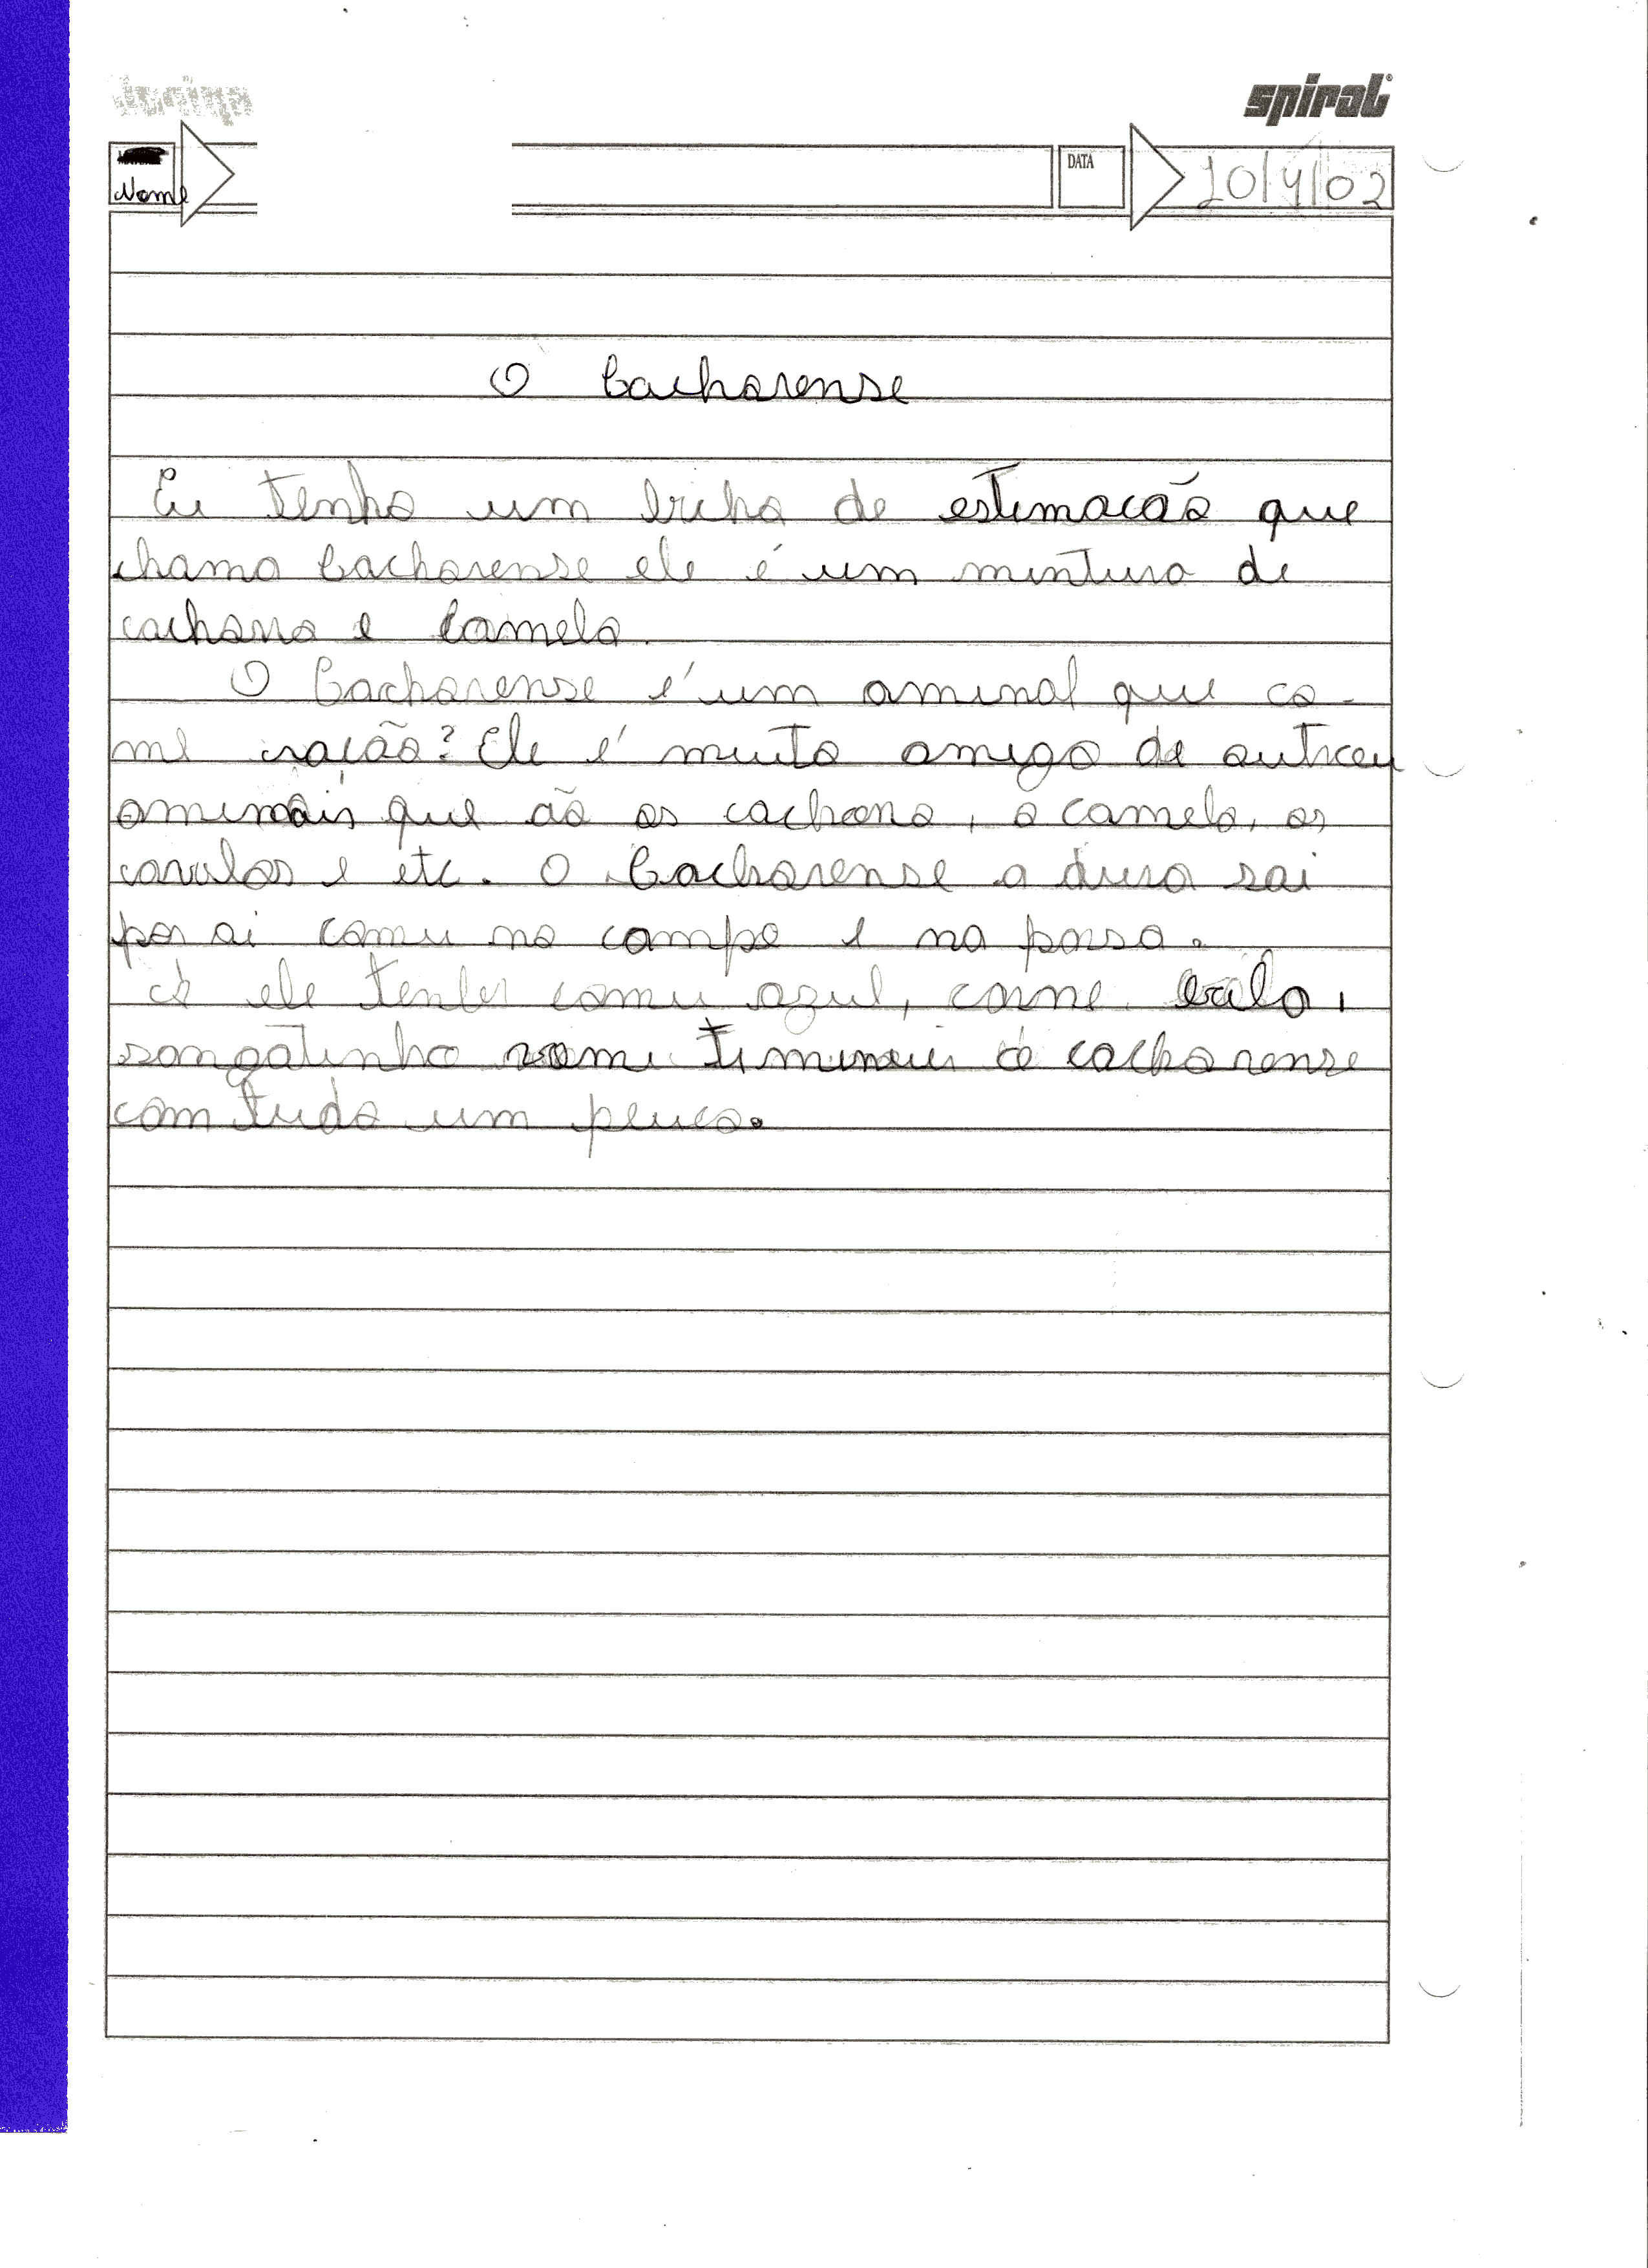 spiral
Nome
DATA
10/4/02
O Cacharense
Eu tenho um bicho de estimacão que
chama Cacharense ele é um mintura de
cachorro e Camelo.
O Cacharense é um aminal que co-
me ração? Ele é muito amigo de
que são os cachorro, o camelo, os
cavalos e etc. O Cacharense a dura sai
por ai comeu no campo e na
ele comeu azul, carne
cacharense
com tudo um pouco.